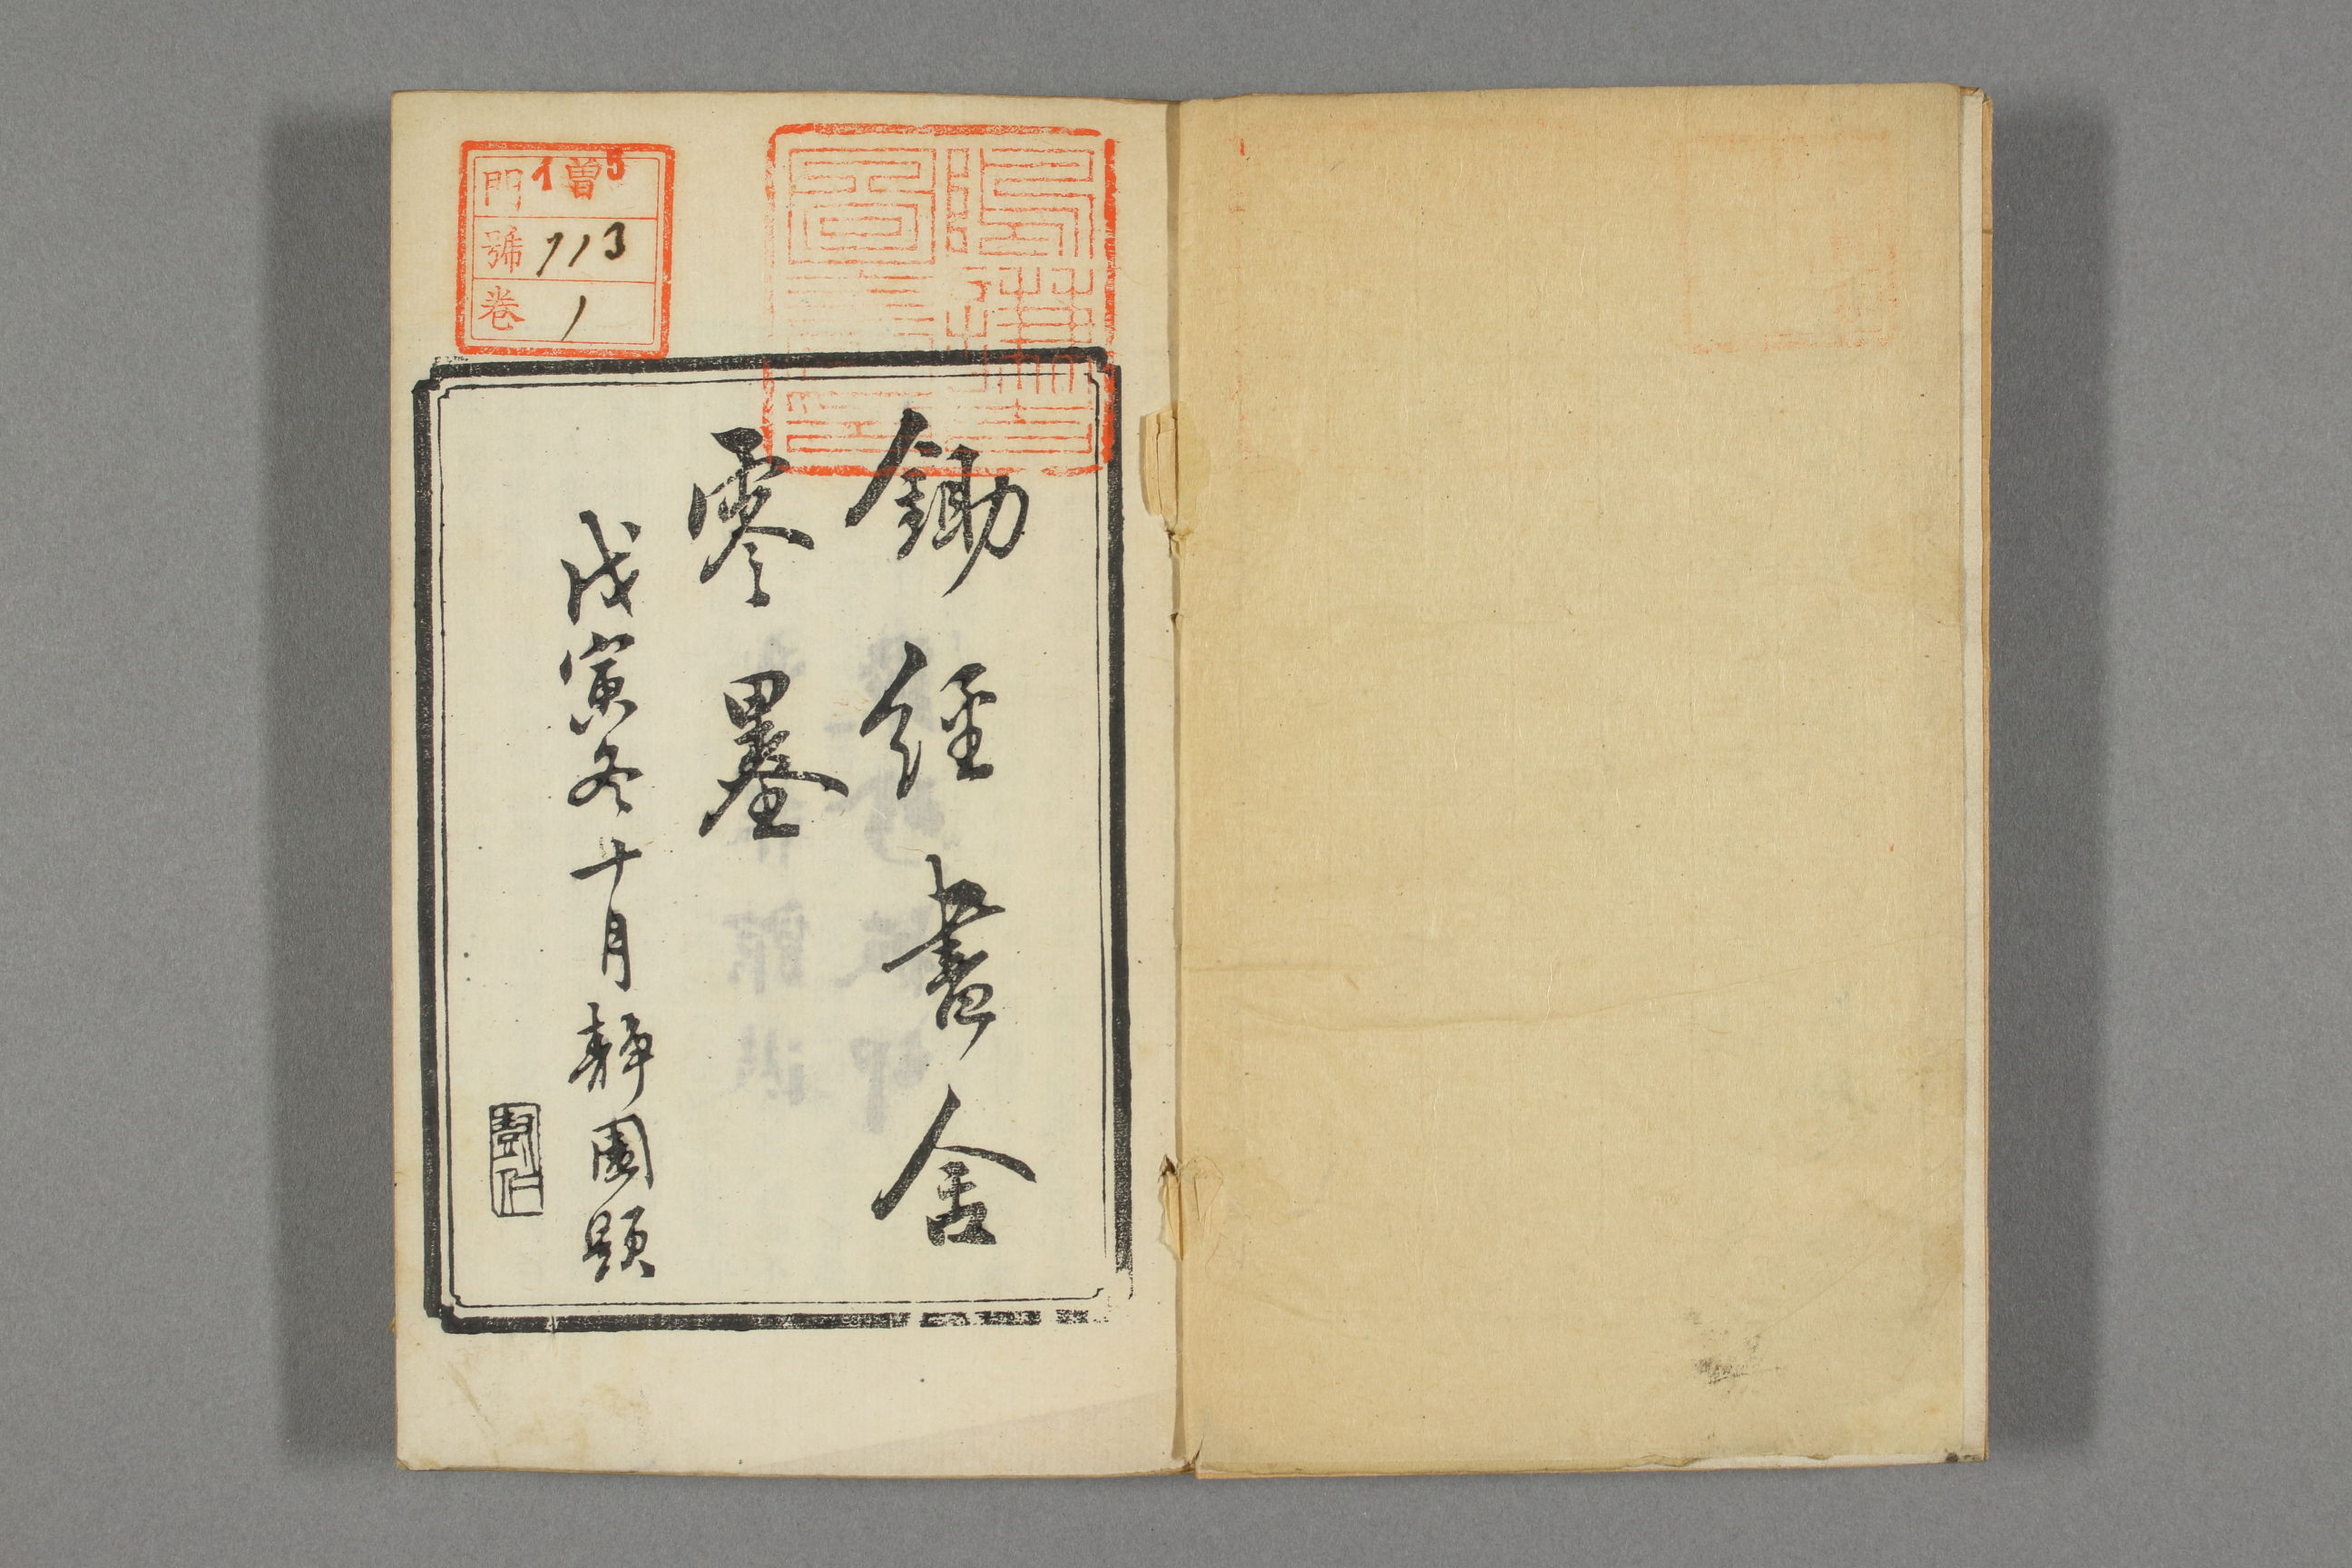 鋤經書舍
零墨
戊寅冬十月靜園題
門 イ曽5
號 713
卷 1